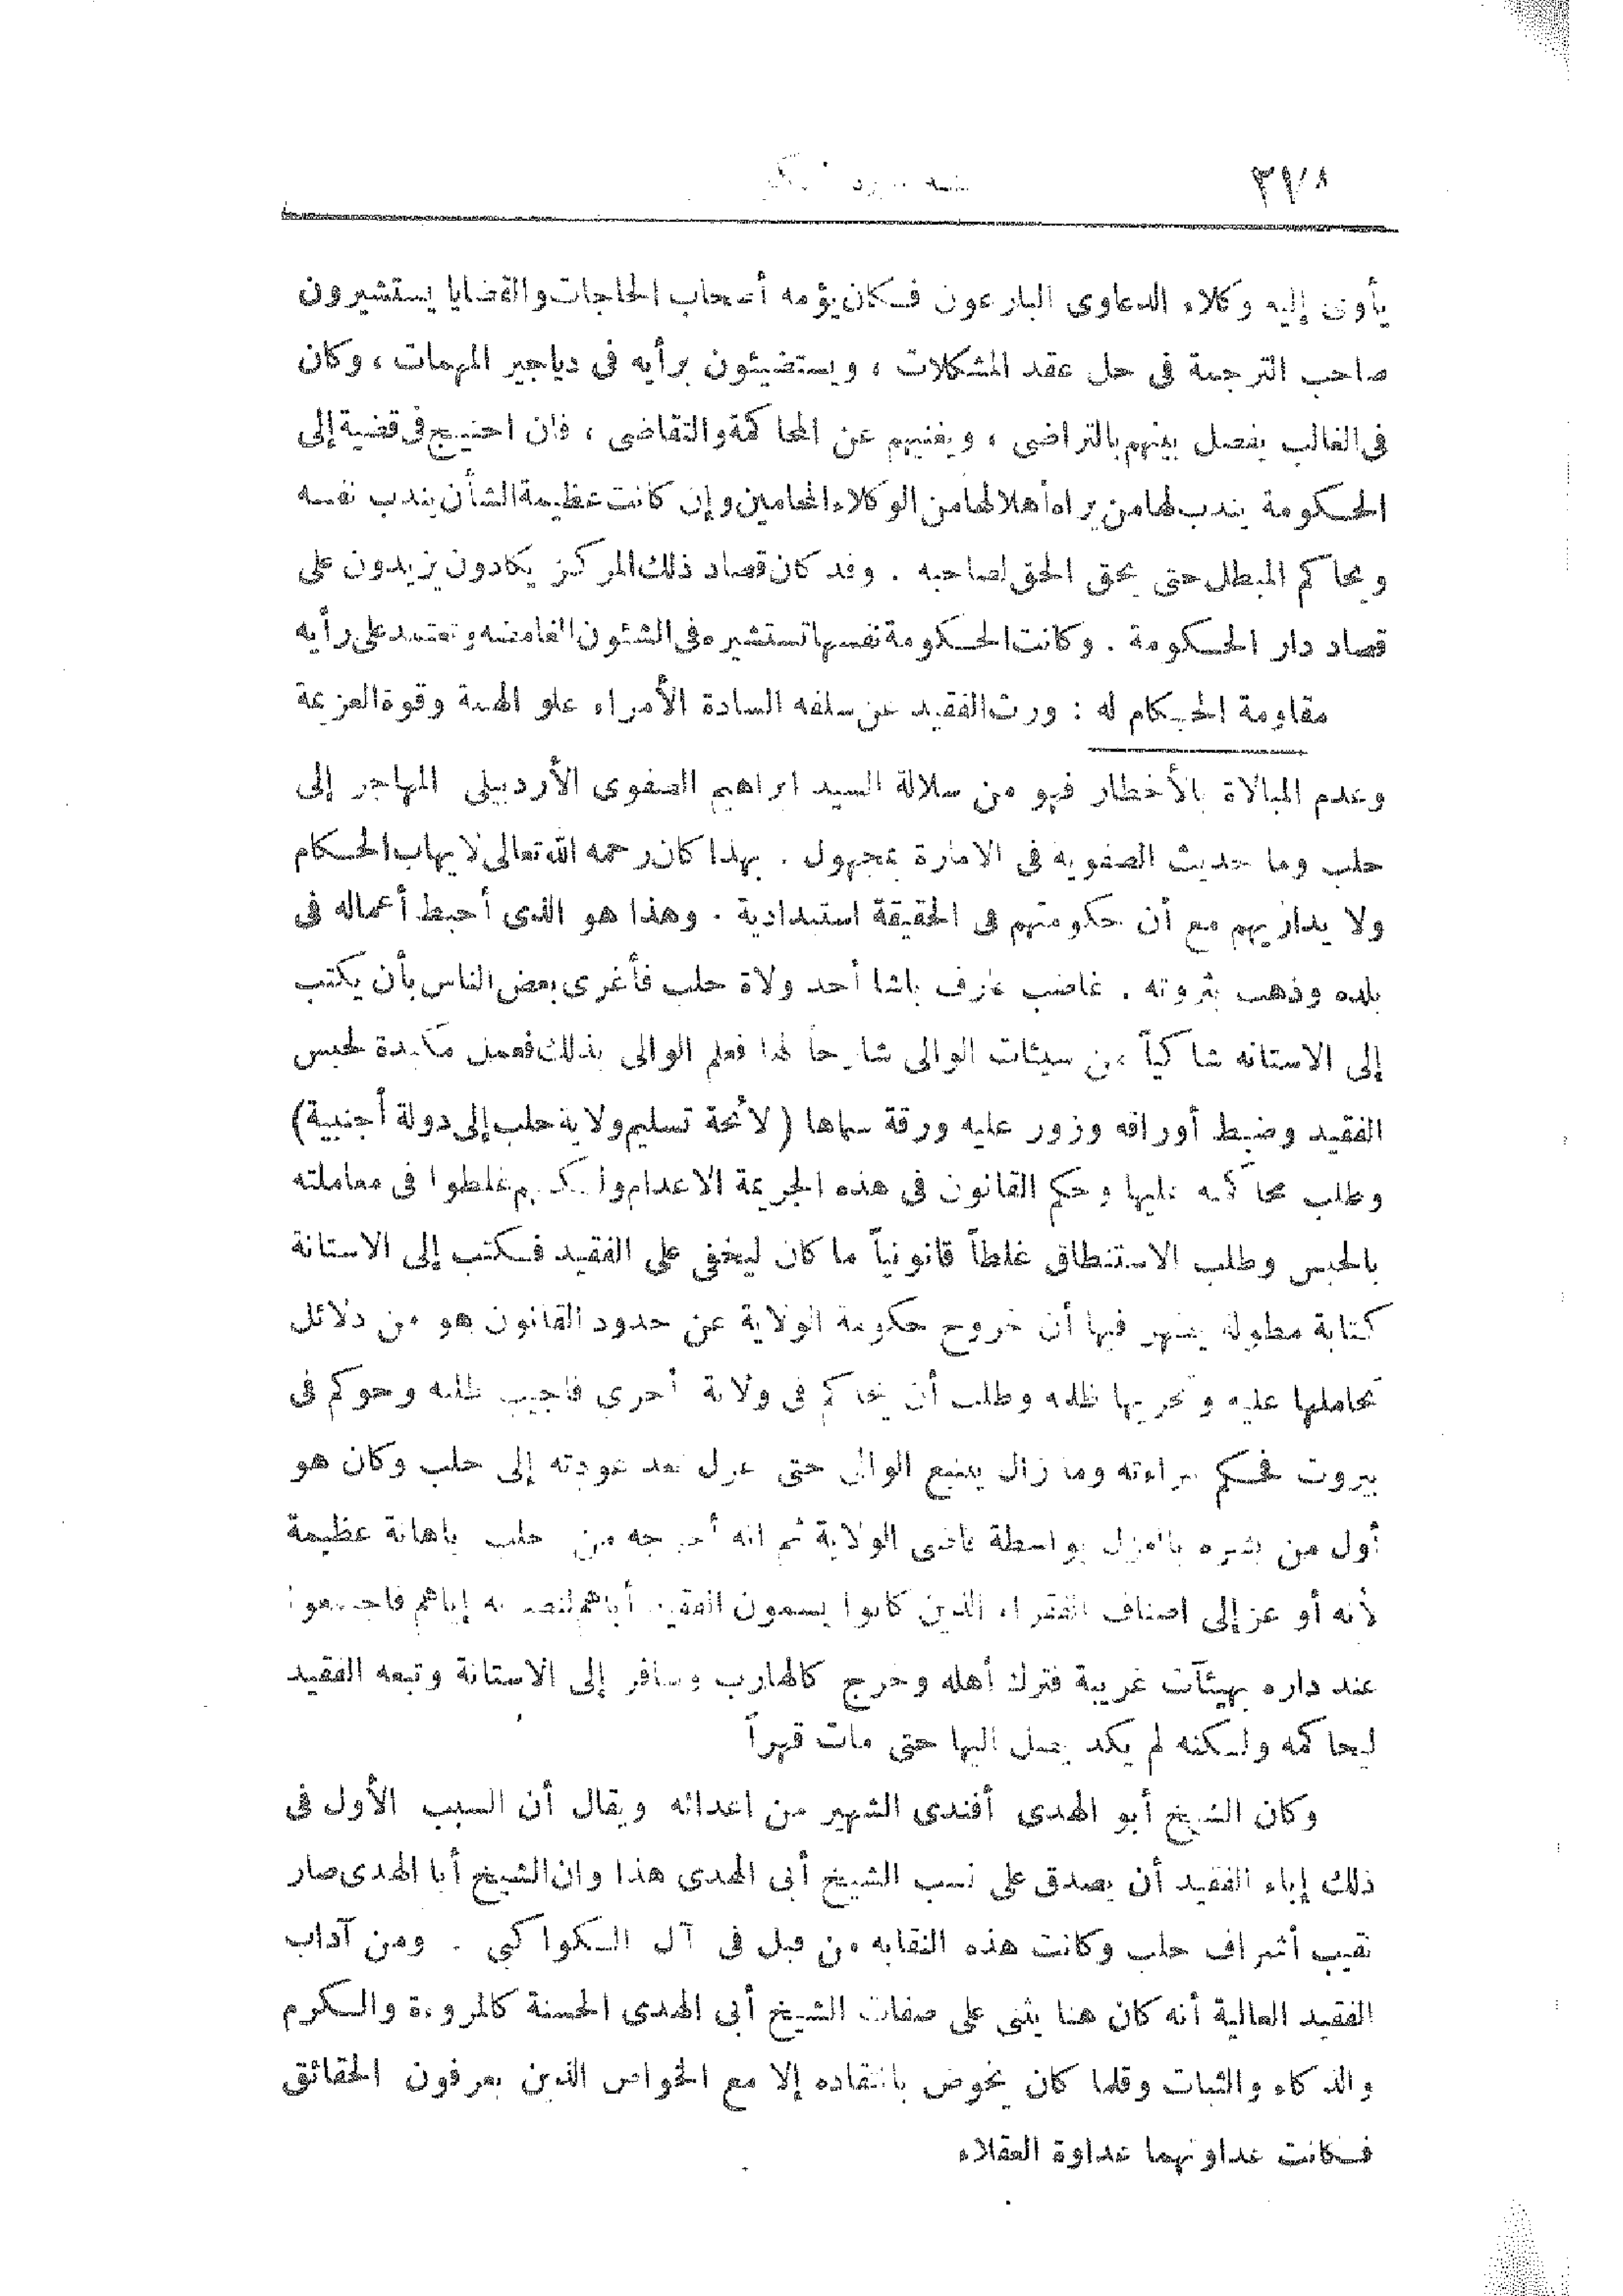 يأوى إليه وكلاء الدعاوى البارعون فكان يؤمه أصحاب الحاجات والقضايا يستشيرون
صاحب الترجمة فى حل عقد المشكلات ، ويستضيئون برأيه فى دياجير المهمات ، وكان
فى الغالب يفصل بينهم بالتراضى ، ويغنيهم عن المحاكمة والتقاضى ، فان احتيج فى قضية إلى
الحكومة يندب لها من يراه أهلا لها من الوكلاء المحامين وإن كانت عظيمة الشأن يندب نفسه
ويحاكم المبطل حتى يحق الحق لصاحبه . وقد كان قصاد ذلك المركز يكادون يزيدون على
قصاد دار الحكومة . وكانت الحكومة نفسها تستشيره فى الشئون الغامضه وتعتمد على رأيه
مقاومة الحكام له : ورث الفقيد عن سلفه السادة الأمراء علو الهمة وقوة العزيمة
وعدم المبالاة بالأخطار فهو من سلالة السيد ابراهيم الصفوى الأردبيلى المهاجر إلى
حلب وما حديث الصفويه فى الامارة بمجهول . بهذا كان رحمه الله تعالى لا يهاب الحكام
ولا يداريهم مع أن حكومتهم فى الحقيقة استبدادية . وهذا هو الذى أحبط أعماله فى
بلده وذهب بثروته . غاضب عارف باشا أحد ولاة حلب فأغرى بعض الناس بأن يكتب
إلى الاستانه شاكياً من سيئات الوالى شارحاً لها فعلم الوالى بذلك فعمل مكيدة لحبس
الفقيد وضبط أوراقه وزور عليه ورقة سماها (لائحة تسليم ولاية حلب إلى دولة أجنبية)
وطلب محاكمته عليها وحكم القانون فى هذه الجريمة الاعدام ولكنهم غلطوا فى معاملته
بالحبس وطلب الاستنطاق غلطاً قانونياً ما كان ليخفى على الفقيد فكتب إلى الاستانة
كتابة مطولة فيها أن خروج حكومة الولاية عن حدود القانون هو من دلائل
تحاملها عليه وتحريها ظلمه وطلب أن يحاكم فى ولاية أخرى فاجيب طلبه وحوكم فى
بيروت فحكم ببراءته وما زال يتتبع الوالى حتى عزل بعد عودته إلى حلب وكان هو
أول من بشره بالعزل بواسطة قاضى الولاية ثم انه أخرجه من حلب باهانة عظيمة
لأنه أوعز إلى اصناف الفقراء الذين كانوا يسمون الفقيد أباهم إياهم فاجتمعوا
عند داره بهيئآت غريبة فترك أهله وخرج كالهارب وسافر إلى الاستانة وتبعه الفقيد
ليحاكمه ولكنه لم يكد يصل اليها حتى مات قهراً
وكان الشيخ أبو الهدى أفندى الشهير من اعدائه ويقال أن السبب الأول فى
ذلك إباء الفقيد أن يصدق على نسب الشيخ أبى الهدى هذا وان الشيخ أبا الهدى صار
نقيب أشراف حلب وكانت هذه النقابه من قبل فى آل الكواكبى . ومن آداب
الفقيد العالية أنه كان هنا يثنى على صفات الشيخ أبى الهدى الحسنة كالمروءة والكرم
والذكاء والثبات وقلما كان يخوض بانتقاده إلا مع الخواص الذين يعرفون الحقائق
فكانت عداوتهما عداوة العقلاء